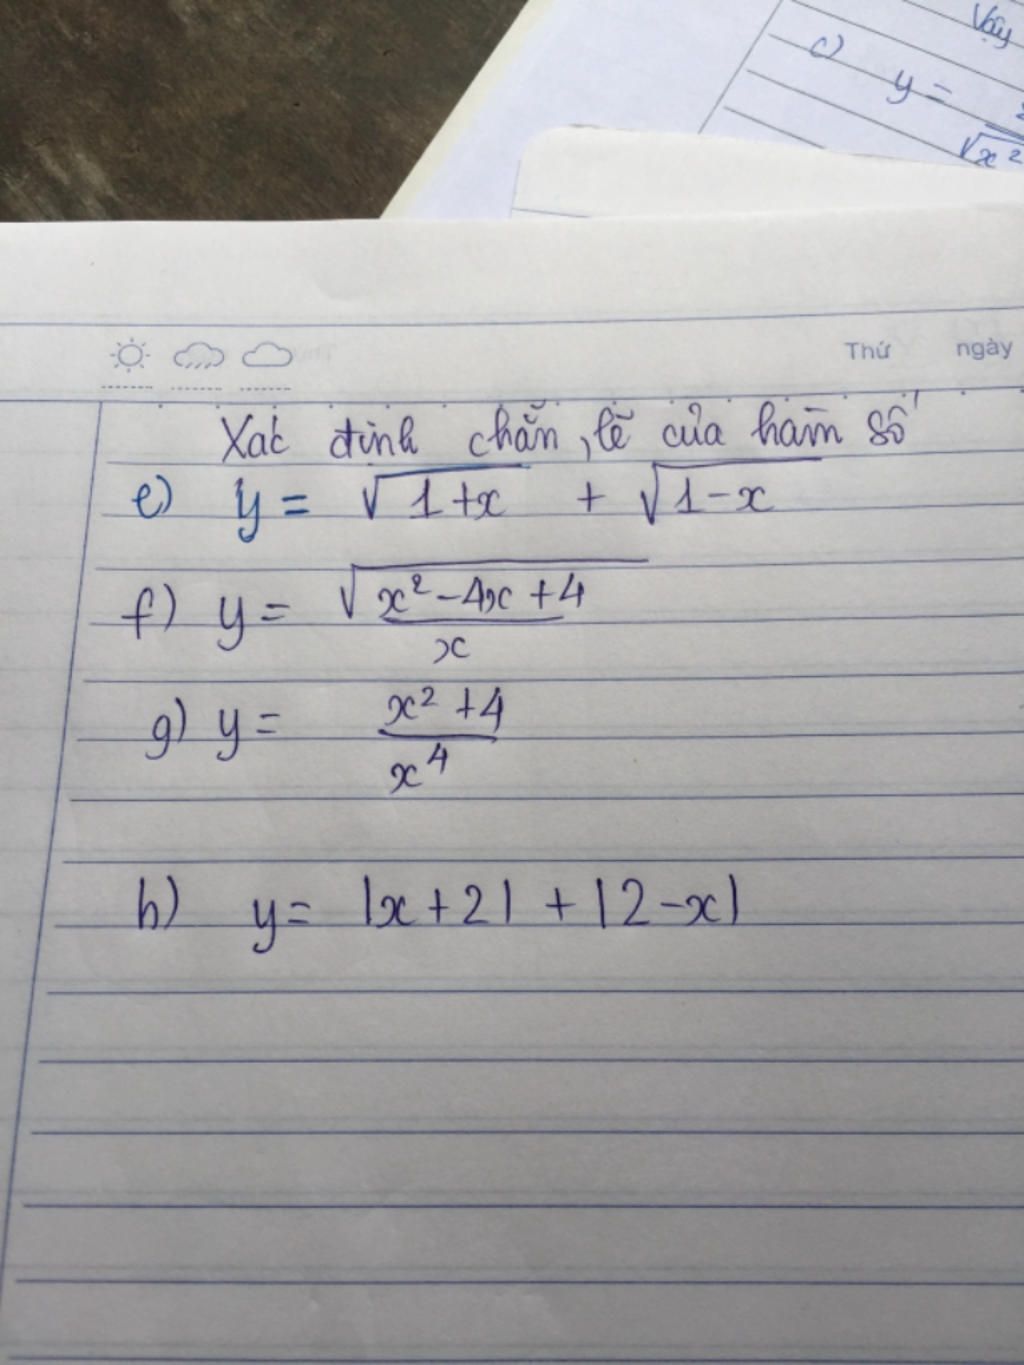 Vậy
c) y =
√x²
Thứ ngày
Xác định chẵn, lẽ của hàm số
e) y = √1+x + √1-x
f) y = √x²-4x+4
x
g) y = x²+4
x⁴
h) y = |x+2| + |2-x|